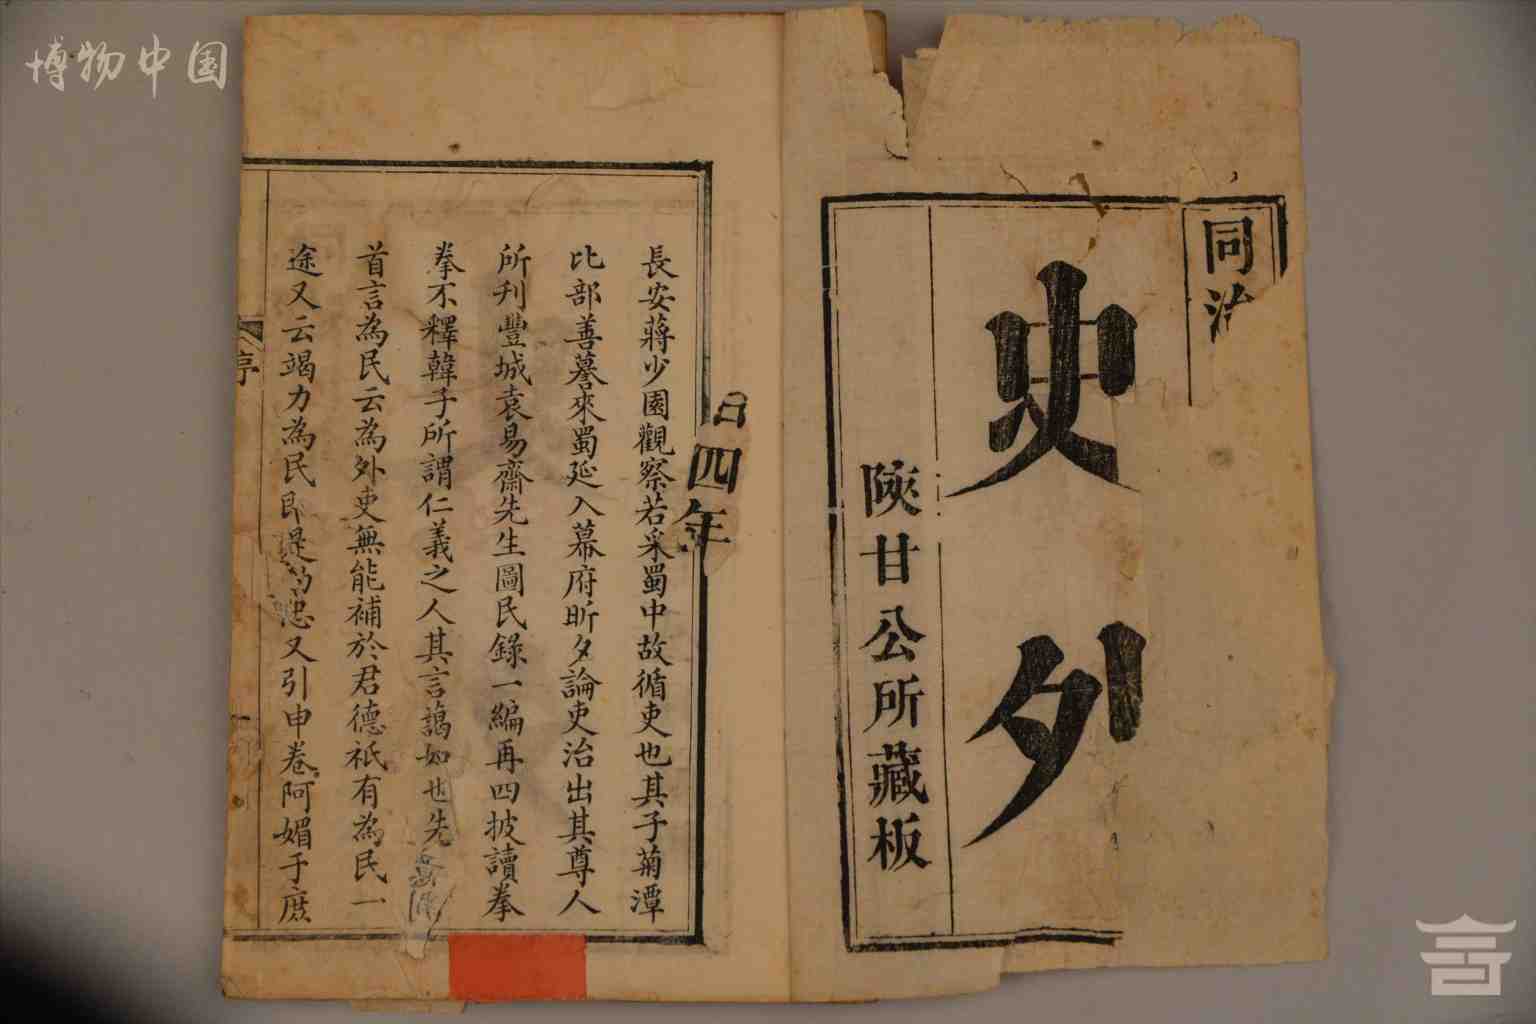 博物中国
同治
史外
陝甘公所藏板
四年
長安蔣少園觀察若采蜀中故循吏也其子菊潭
比部善謩來蜀延入幕府昕夕論吏治出其尊人
所刋豐城袁易齋先生圖民錄一編再四披讀拳
拳不釋韓子所謂仁義之人其言藹如也先
首言為民云為外吏無能補於君德祇有為民一
途又云竭力為民即是 忠又引申卷阿媚于庶
序